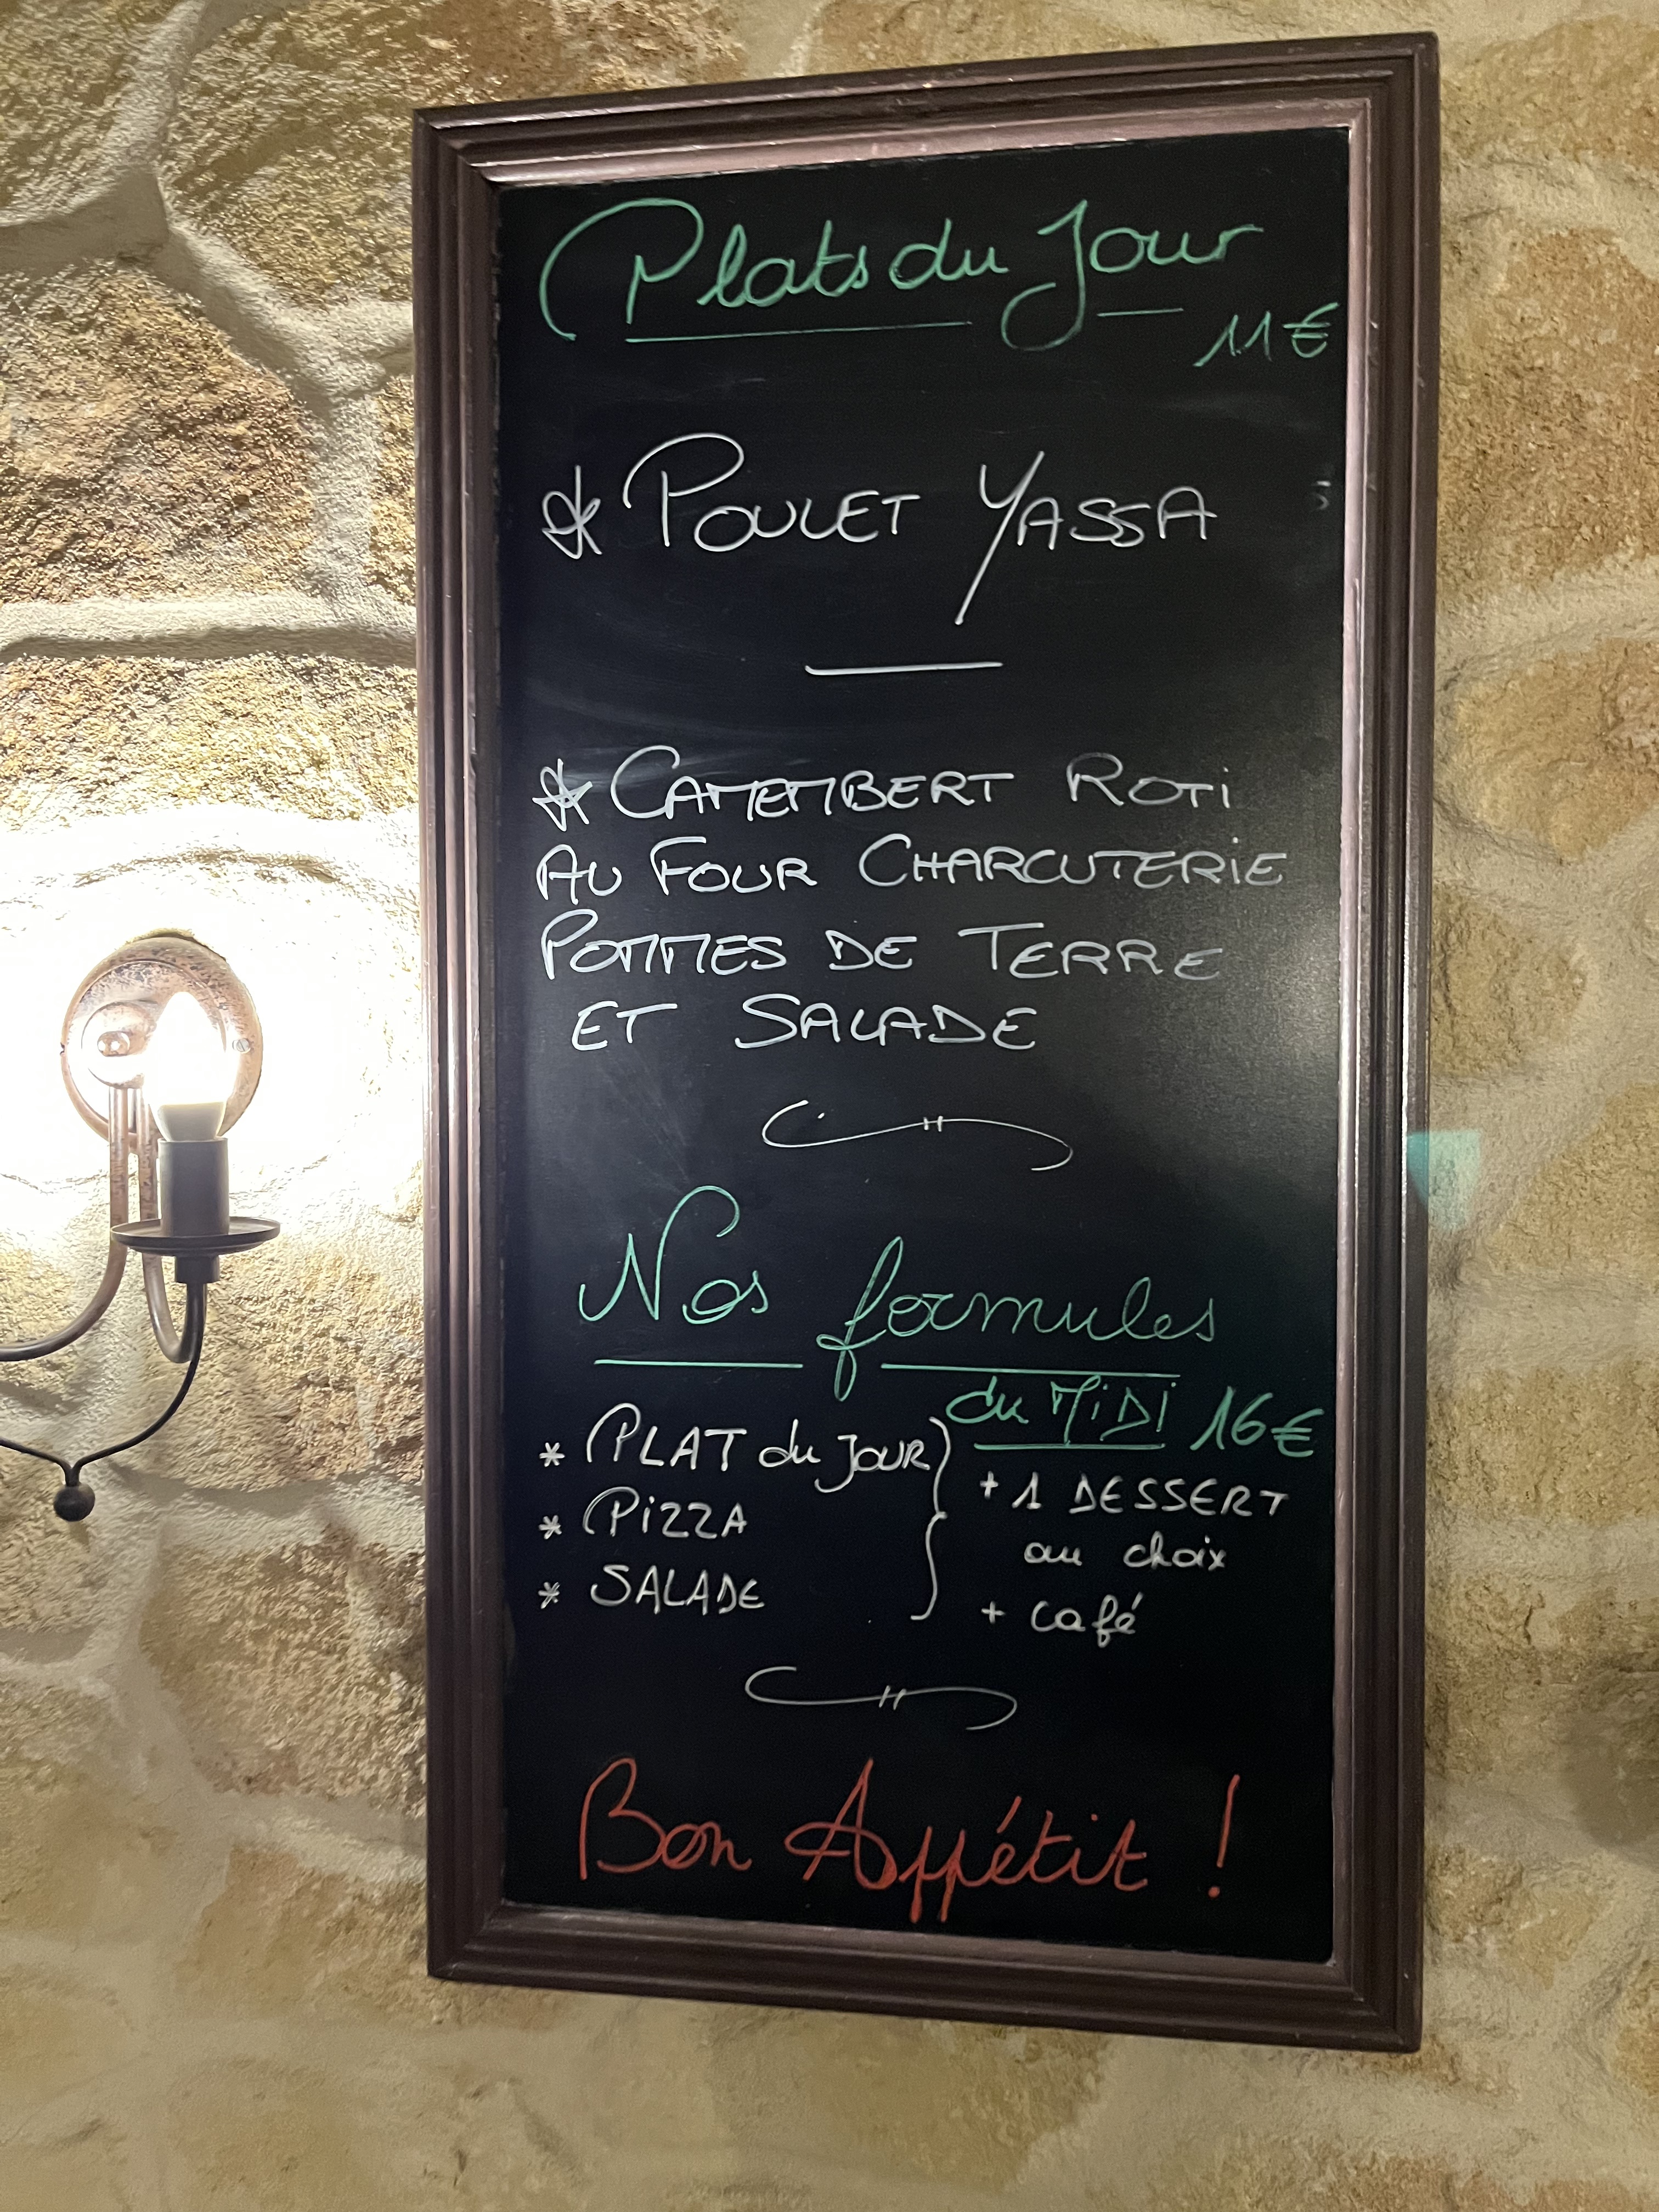 Plats du Jour
11€
* POULET YASSA
* CAMEMBERT ROTi
AU FOUR CHARCUTERiE
POMMES DE TERRE
ET SALADE
Nos formules
du MiDi 16€
* PLAT du JOUR
+ 1 DESSERT
* PiZZA
au choix
* SALADE
+ café
Bon Appétit !